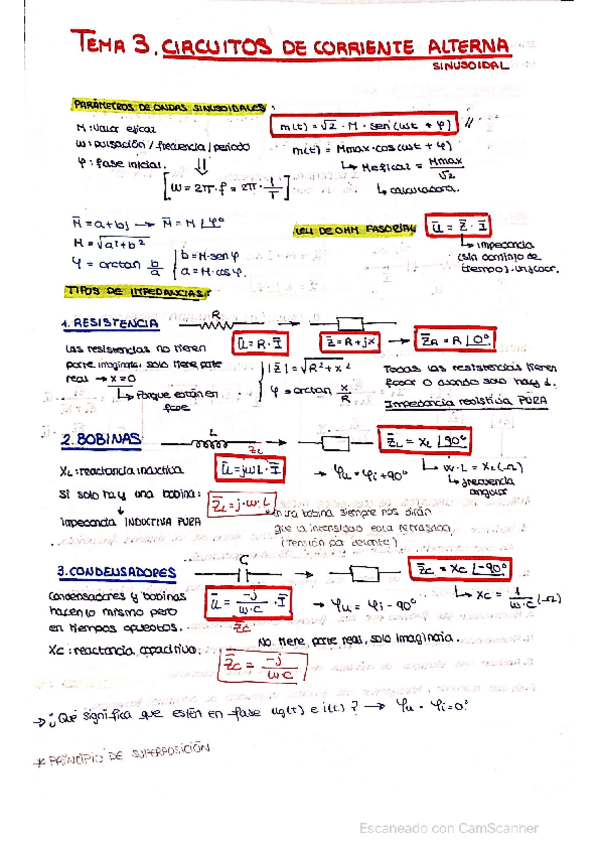 TEMA 3. CIRCUITOS DE CORRIENTE ALTERNA
SINUSOIDAL
PARÁMETROS DE ONDAS SINUSOIDALES:
M: Valor eficaz
m(t) = √2 · M · sen(ωt + φ)
ω: pulsación / frecuencia / periodo
m(t) = Mmax · cos(ωt + φ)
φ: fase inicial.
↳ Meficaz = Mmax/√2
[ω = 2π · f = 2π · 1/T]
↳ calculadora.
M̄ = a + bj → M̄ = M∠φ°
LEY DE OHM FASORIAL
Ū = Z̄ · Ī
M = √a² + b²
↳ impedancia
φ = arctan b/a
b = M · sen φ
a = M · cos φ.
(sin dominio de
tiempo).
TIPOS DE IMPEDANCIAS:
1. RESISTENCIA
R
Ū = R · Ī
Z̄ = R + jX → Z̄R = R∠0°
Las resistencias no tienen
parte imaginaria, solo tiene parte
real → X = 0
↳ Porque están en
fase
|Z̄| = √R² + X²
φ = arctan X/R
Todas las resistencias tienen
Impedancia resistiva PURA
2. BOBINAS
L
ZL
Z̄L = XL∠90°
XL: reactancia inductiva
Ū = jωL · Ī
→ φu = φi + 90°
↳ ω · L = XL (Ω)
↳ frecuencia
angular
Si solo hay una bobina:
Z̄L = j · ω · L
↓
Impedancia INDUCTIVA PURA
* En una bobina siempre nos dirán
que la intensidad está retrasada
(Tensión por delante)
3. CONDENSADORES
C
Z̄C = XC∠-90°
Condensadores y bobinas
hacen lo mismo pero
en tiempos opuestos.
Ū = -j/ω·C · Ī
Z̄C
→ φu = φi - 90°
↳ XC = 1/ω·C (Ω)
No tiene parte real, solo imaginaria.
XC: reactancia capacitiva.
Z̄C = -j/ωC
→ ¿Qué significa que estén en fase ug(t) e i(t)? → φu - φi = 0°
* PRINCIPIO DE SUPERPOSICIÓN
Escaneado con CamScanner